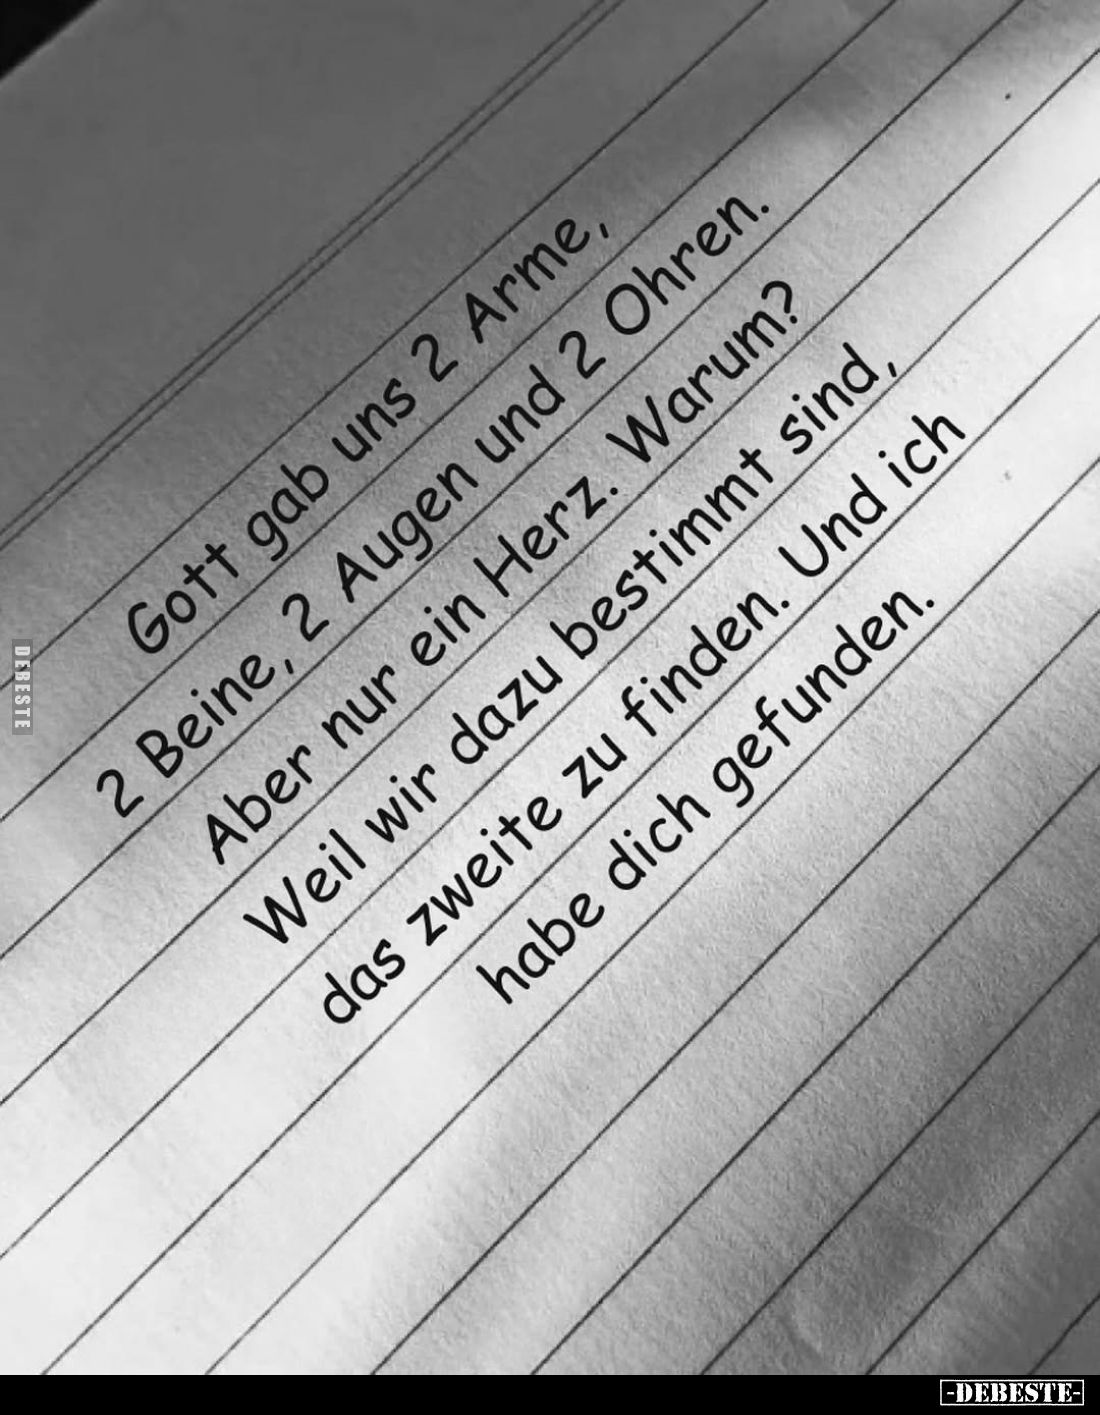 Gott gab uns 2 Arme,
2 Beine, 2 Augen und 2 Ohren.
Aber nur ein Herz. Warum?
Weil wir dazu bestimmt sind,
das zweite zu finden. Und ich
habe dich gefunden.
DEBESTE
-DEBESTE-